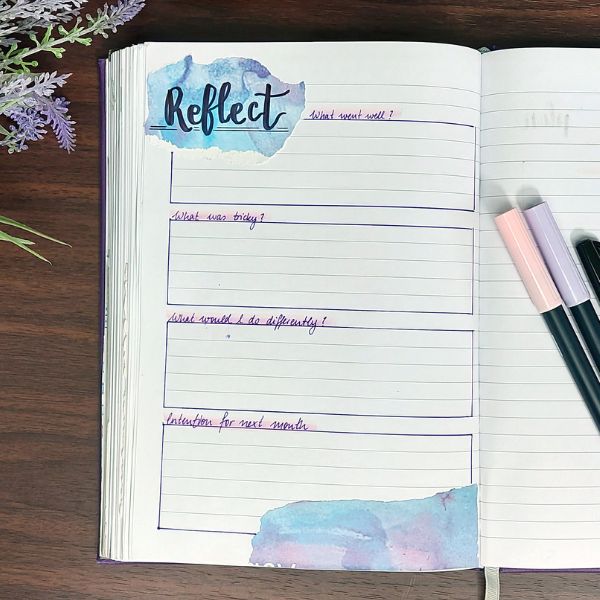 Reflect
What went well?
What was tricky?
What would I do differently?
Intention for next month